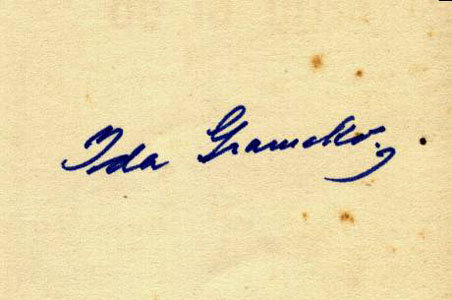 Ida Gramcko